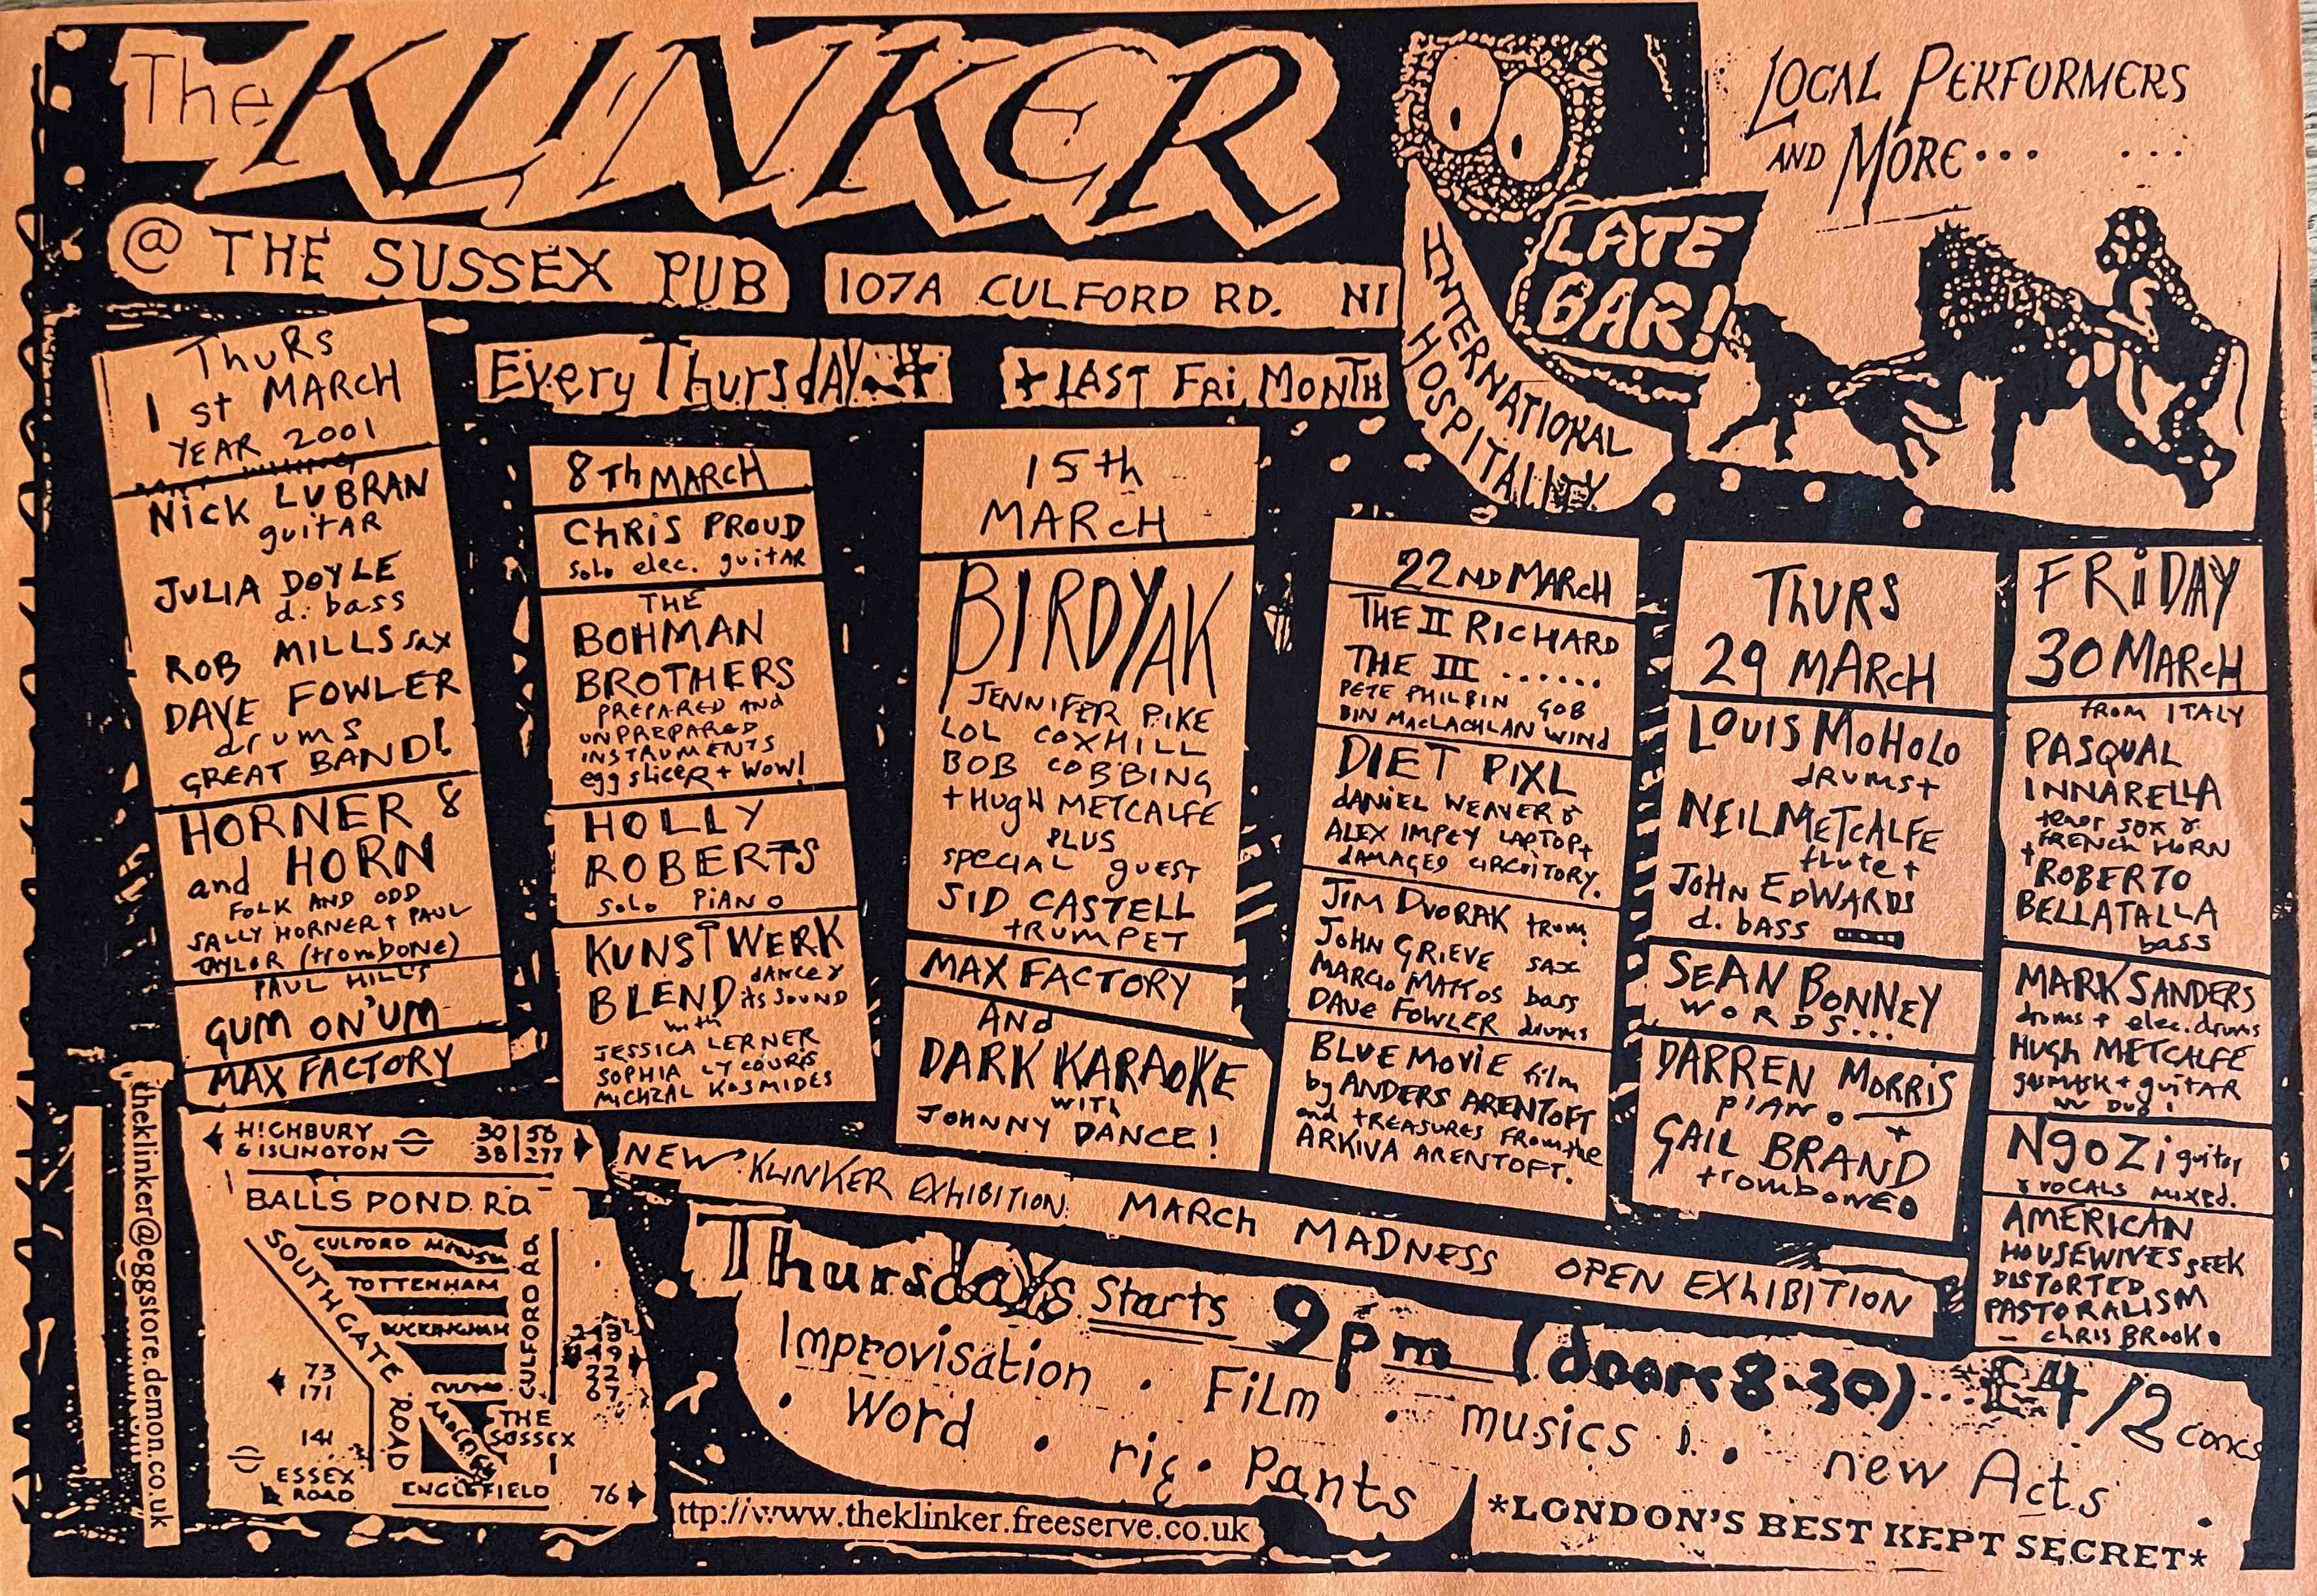 The KLINKER
@ THE SUSSEX PUB
107A CULFORD RD. N1
Every Thursday
+ LAST FRI, MONTH
INTERNATIONAL
HOSPITALITY
LATE
BAR!
LOCAL PERFORMERS
AND MORE... ...
Thurs
1st MARCH
YEAR 2001
NICK LUBRAN
guitar
JULIA DOYLE
d. bass
ROB MILLS sax
DAVE FOWLER
drums
GREAT BAND!
HORNER &
and HORN
FOLK AND ODD
SALLY HORNER + PAUL
TAYLOR (trombone)
PAUL HILL'S
GUM ON'UM
MAX FACTORY
8Th MARCH
CHRIS PROUD
Solo elec. guitar
THE
BOHMAN
BROTHERS
PREPARED AND
UNPREPARED
INSTRUMENTS
egg slicer + wow!
HOLLY
ROBERTS
Solo PIANO
KUNSTWERK
BLEND dance &
its sound
with
JESSICA LERNER
SOPHIA LYCOURIS
MICHZAL KOSMIDES
15th
MARCH
BIRDYAK
JENNIFER PIKE
LOL COXHILL
BOB COBBING
+ HUGH METCALFE
PLUS
SPECIAL GUEST
SID CASTELL
TRUMPET
MAX FACTORY
AND
DARK KARAOKE
WITH
JOHNNY DANCE!
22ND MARCH
THE II RICHARD
THE III ......
PETE PHILBIN GOB
BIN MacLACHLAN WIND
DIET PIXL
DANIEL WEAVER &
ALEX IMPEY LAPTOP+
DAMAGED CIRCUITORY.
JIM DVORAK trum
JOHN GRIEVE sax
MARCIO MATTOS bass
DAVE FOWLER drums
BLUE MOVIE film
by ANDERS ARENTOFT
and TREASURES FROM the
ARKIVA ARENTOFT.
THURS
29 MARCH
LOUIS MOHOLO
drums+
NEIL METCALFE
flute +
JOHN EDWARDS
d. BASS
SEAN BONNEY
WORDS...
DARREN MORRIS
PIANO
+
GAIL BRAND
tromboned
FRIDAY
30 MARCH
from ITALY
PASQUAL
INNARELLA
tenor sax &
FRENCH HORN
+ ROBERTO
BELLATALLA
bass
MARK SANDERS
drums + elec. drums
HUGH METCALFE
gasmask + guitar
DUO!
NgoZi guitar
& VOCALS mixed.
AMERICAN
HOUSEWIVES SEEK
DISTORTED
PASTORALISM
- CHRIS BROOK.
theklinker@eggstore.demon.co.uk
HIGHBURY
& ISLINGTON
30 | 56
38 | 277
BALLS POND RD
CULFORD MEWS
TOTTENHAM
BUCKINGHAM
SOUTHGATE ROAD
CULFORD RD
73
171
141
ESSEX
ROAD
THE
SUSSEX
ENGLEFIELD
243
149
22
67
76
NEW KLINKER EXHIBITION: MARCH MADNESS OPEN EXHIBITION
Thursdays Starts 9pm (doors 8.30) .. £4/2 concs
Improvisation . Film . musics . new Acts .
. Word . rig . Pants
ttp://www.theklinker.freeserve.co.uk
*LONDON'S BEST KEPT SECRET*